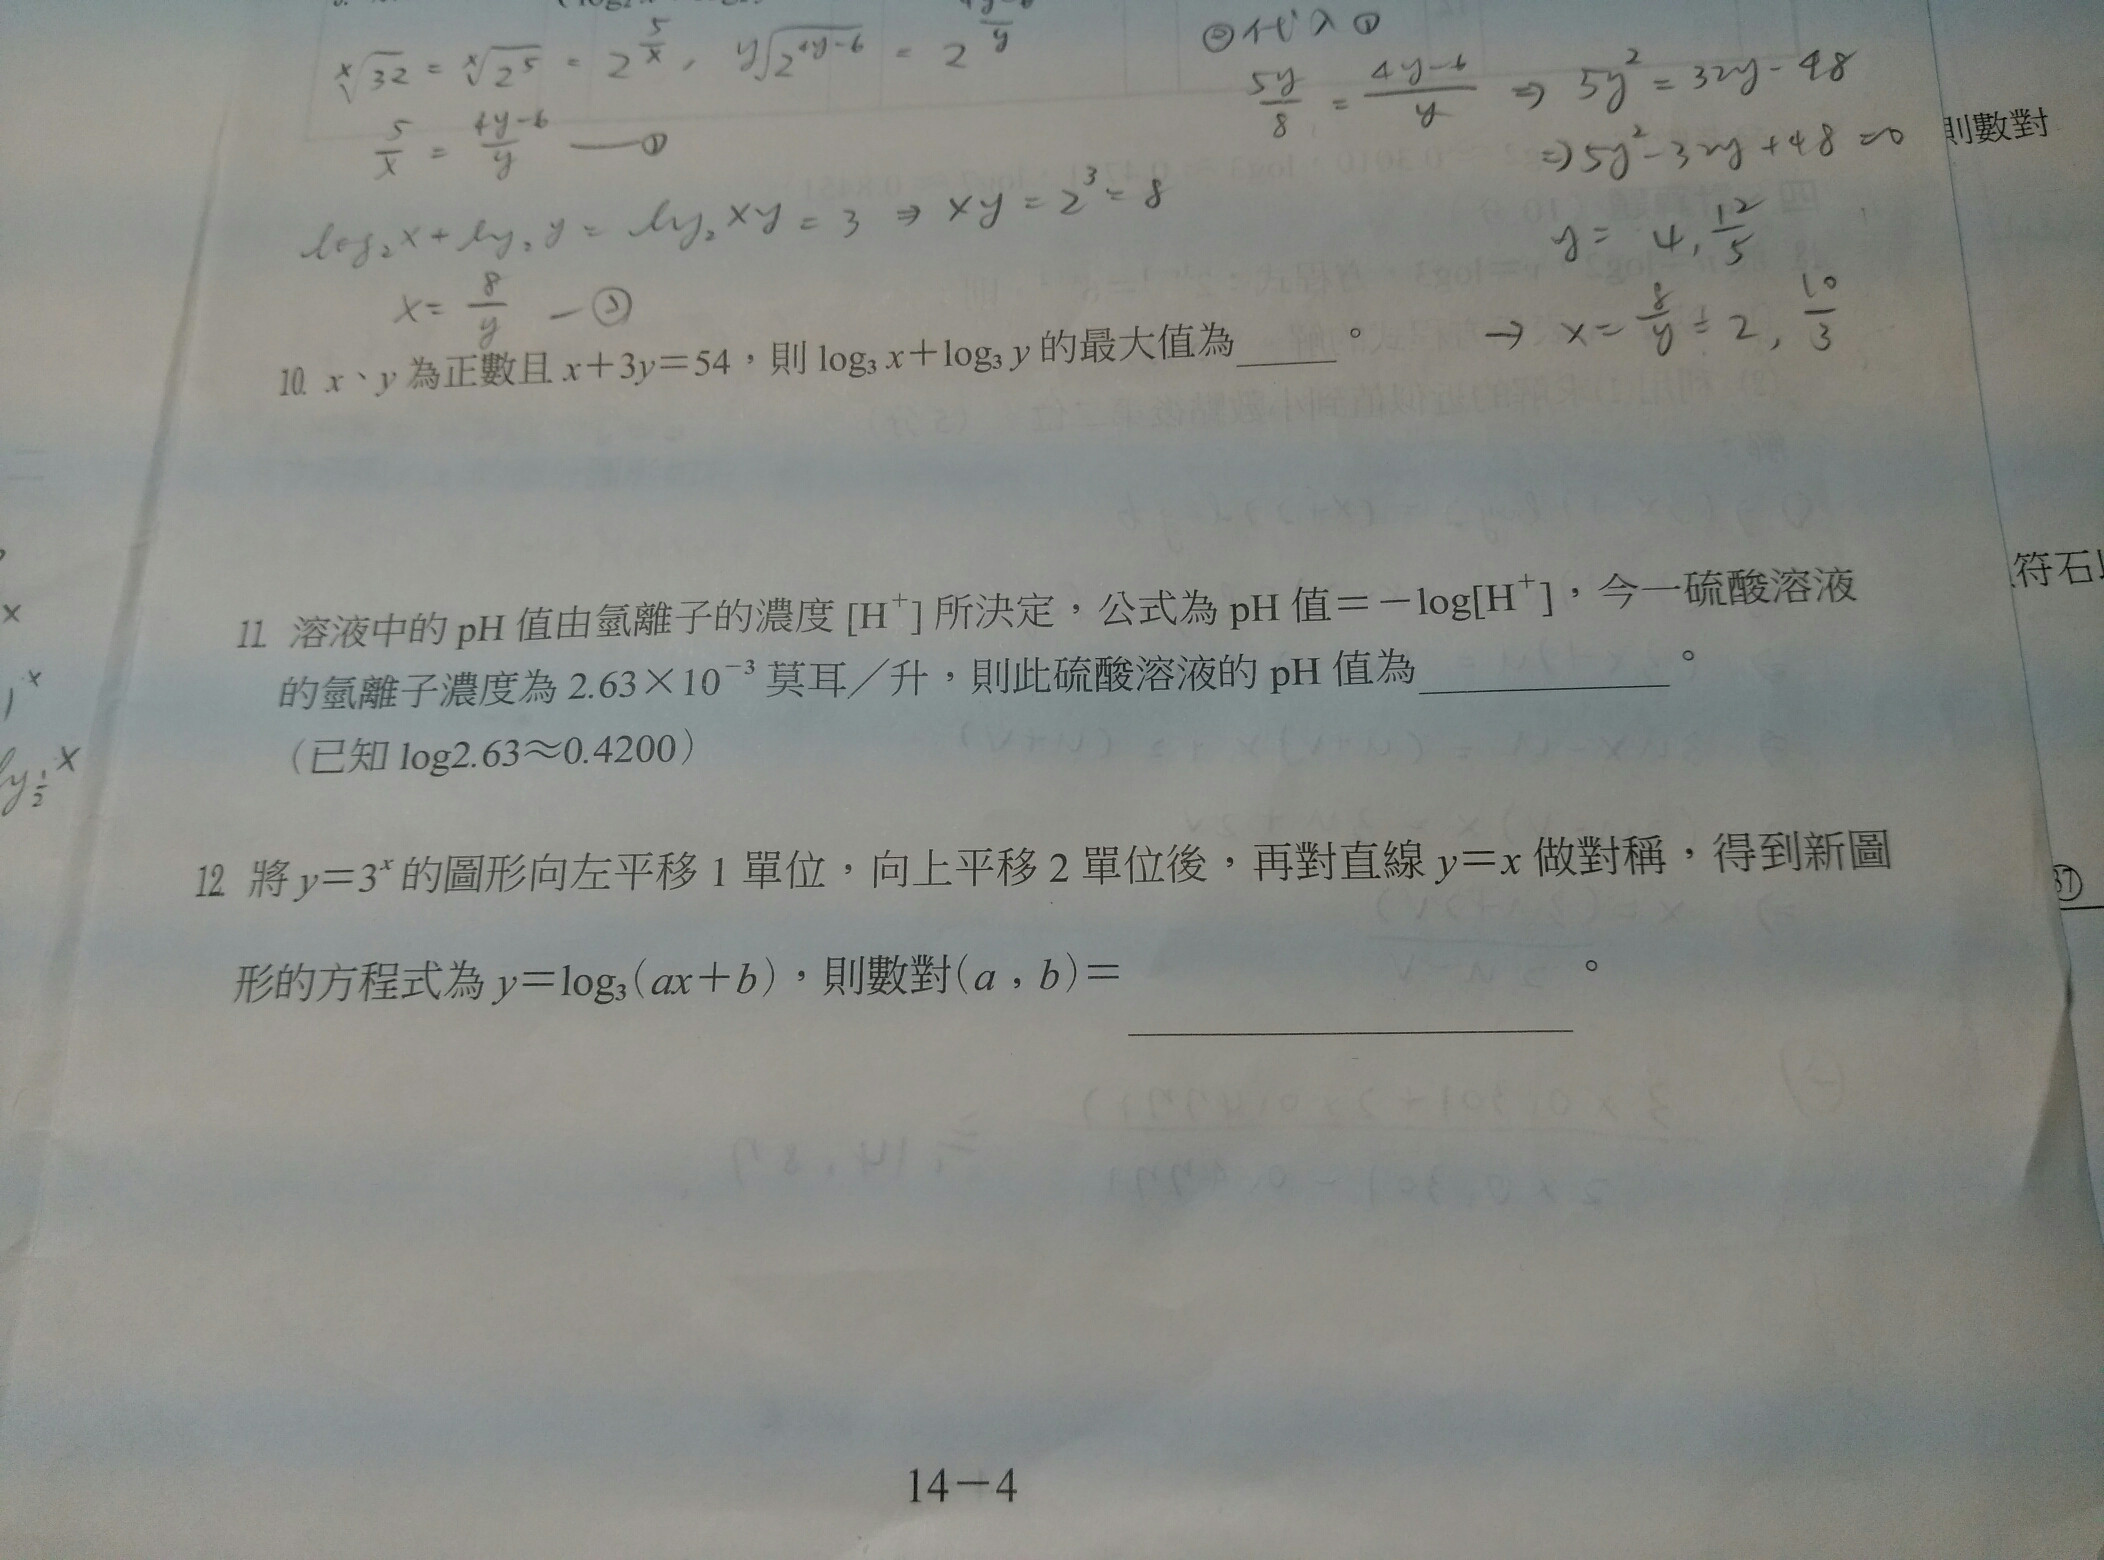 ˣ√32 = ˣ√2⁵ = 2^(5/x) , ʸ√2^(4y-6) = 2^((4y-6)/y)
5/x = (4y-6)/y —①
log₂x + log₂y = log₂xy = 3 ⇒ xy = 2³ = 8
x = 8/y —②
②代入①
5y/8 = (4y-6)/y ⇒ 5y² = 32y - 48
⇒ 5y² - 32y + 48 = 0
y = 4, 12/5
→ x = 8/y = 2, 10/3
則數對
10. x、y 為正數且 x+3y=54，則 log₃ x+log₃ y 的最大值為_____。
11. 溶液中的 pH 值由氫離子的濃度 [H⁺] 所決定，公式為 pH 值=-log[H⁺]，今一硫酸溶液
的氫離子濃度為 2.63×10⁻³ 莫耳／升，則此硫酸溶液的 pH 值為____________。
（已知 log2.63≈0.4200）
12. 將 y=3ˣ 的圖形向左平移 1 單位，向上平移 2 單位後，再對直線 y=x 做對稱，得到新圖
形的方程式為 y=log₃(ax+b)，則數對(a，b)=____________。
14-4